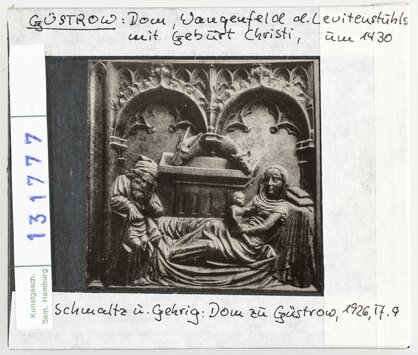 GÜSTROW: Dom, Wangenfeld d. Levitenstuhls
mit Geburt Christi, um 1430
131777
Kunstgesch.
Sem. Hamburg
Schmaltz u. Gehrig: Dom zu Güstrow, 1926, T. 9